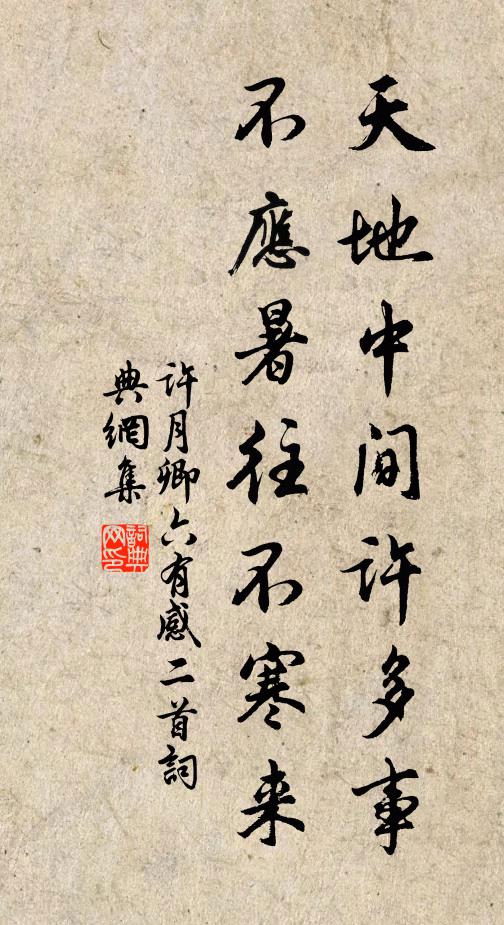 天地中间许多事
不應暑往不寒来
许月卿六有感二首詞
典網集
詞典
网印